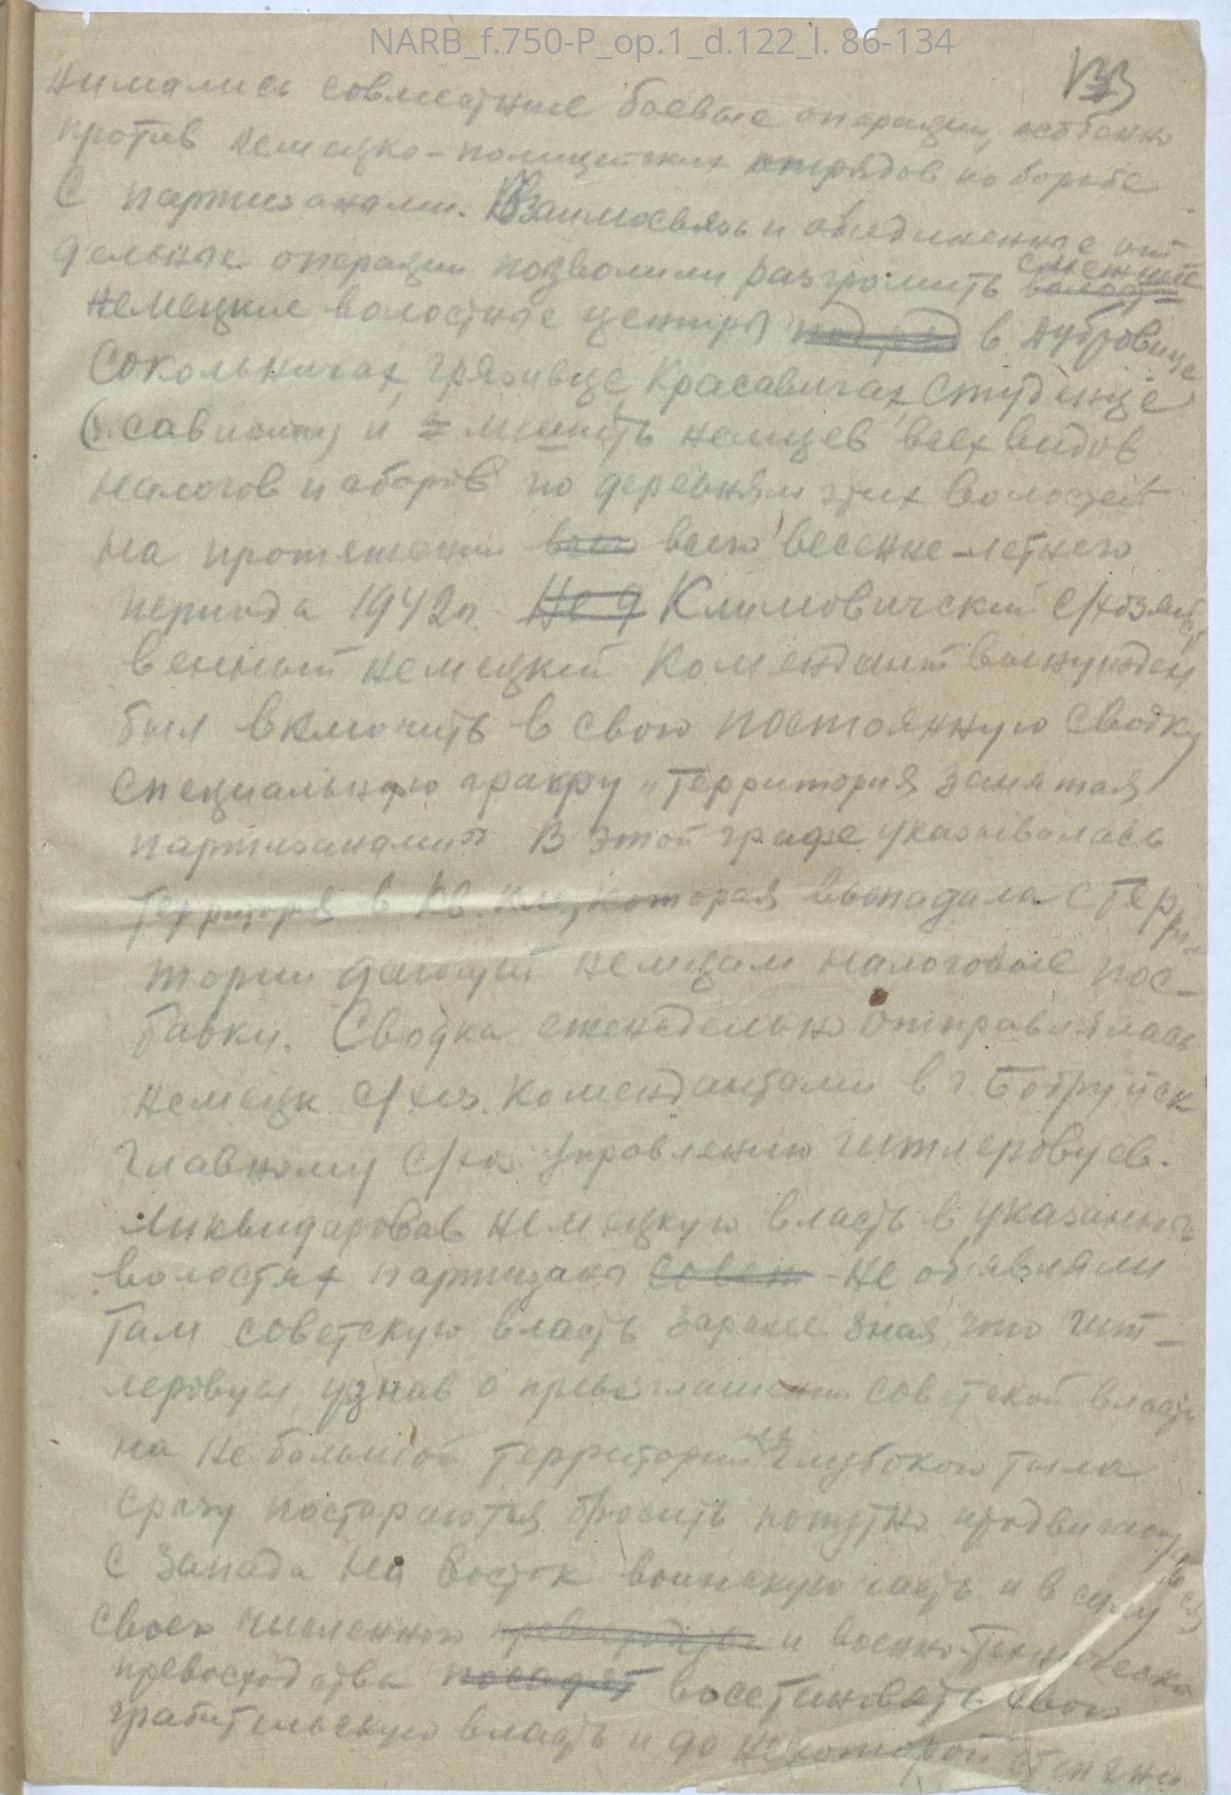 NARB_f.750-P_op.1_d.122_l. 86-134
133
нимались совместные боевые операции, особенно
против немецко-полицейских отрядов по борьбе
с партизанами. Взаимосвязь и объединенные от
дельные операции позволили разгромить волост смежные
немецкие волостные центры под ред в Дубровице
Сокольничах, Грязивце, Красавичах, Студенце
и лишить немцев всех видов
налогов и сборов по деревням этих волостей
на протяжении всего всего весенне-летнего
периода 1942 г. Не д Климовичский с/хозяйст
венный немецкий комендант вынужден
был включить в свою постоянную сводку
специальную графу „территория занятая
партизанами" В этой графе указывалась
территория в кв. км, которая выпадала с терри
тории дающей немцам налоговые пос-
тавки. Сводка еженедельно отправлялась
немецк с/хоз. комендантами в г. Бобруйск
главному с/хоз управлению гитлеровцев.
Ликвидировав немецкую власть в указанных
волостях партизаны совет не объявляли
там советскую власть заранее зная что гит-
леровцы узнав о провозглашении советской власти
на небольшой территории их глубокого тыла
сразу постараются бросить попутно продвигающуюся
с запада на восток воинскую часть и в силу
своего численного превосходства и военно-технического
превосходства посадят восстановить свою
грабительскую власть и до некоторой степени